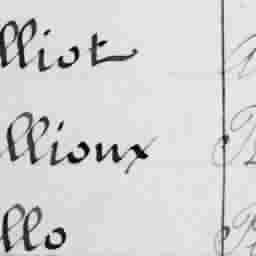 lliot
llioux
llo